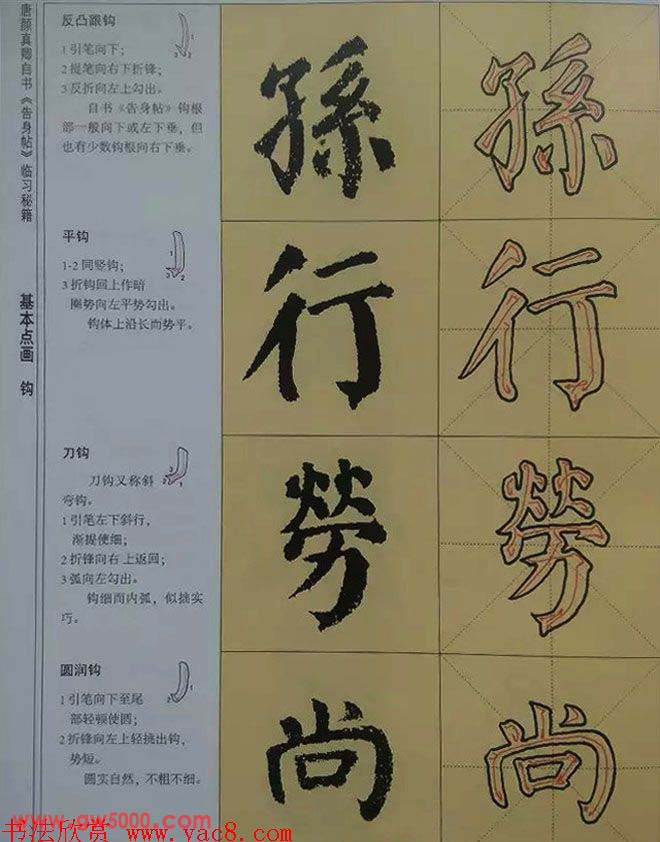 唐颜真卿自书《告身帖》临习秘籍
基本点画 钩
反凸跟钩
1 引笔向下;
2 提笔向右下折锋;
3 反折向左上勾出。
自书《告身帖》钩根
部一般向下或左下垂，但
也有少数钩根向右下垂。
孫
孫
平钩
1-2 同竖钩;
3 折钩回上作暗
圈势向左平势勾出。
钩体上沿长而势平。
行
行
刀钩
刀钩又称斜
弯钩。
1 引笔左下斜行，
渐提使细;
2 折锋向右上返回;
3 弧向左勾出。
钩细而内弧，似拙实
巧。
勞
勞
圆润钩
1 引笔向下至尾
部轻顿使圆;
2 折锋向左上轻挑出钩，
势短。
圆实自然，不粗不细。
尚
尚
www.gw5000.com
书法欣赏 www.yac8.com